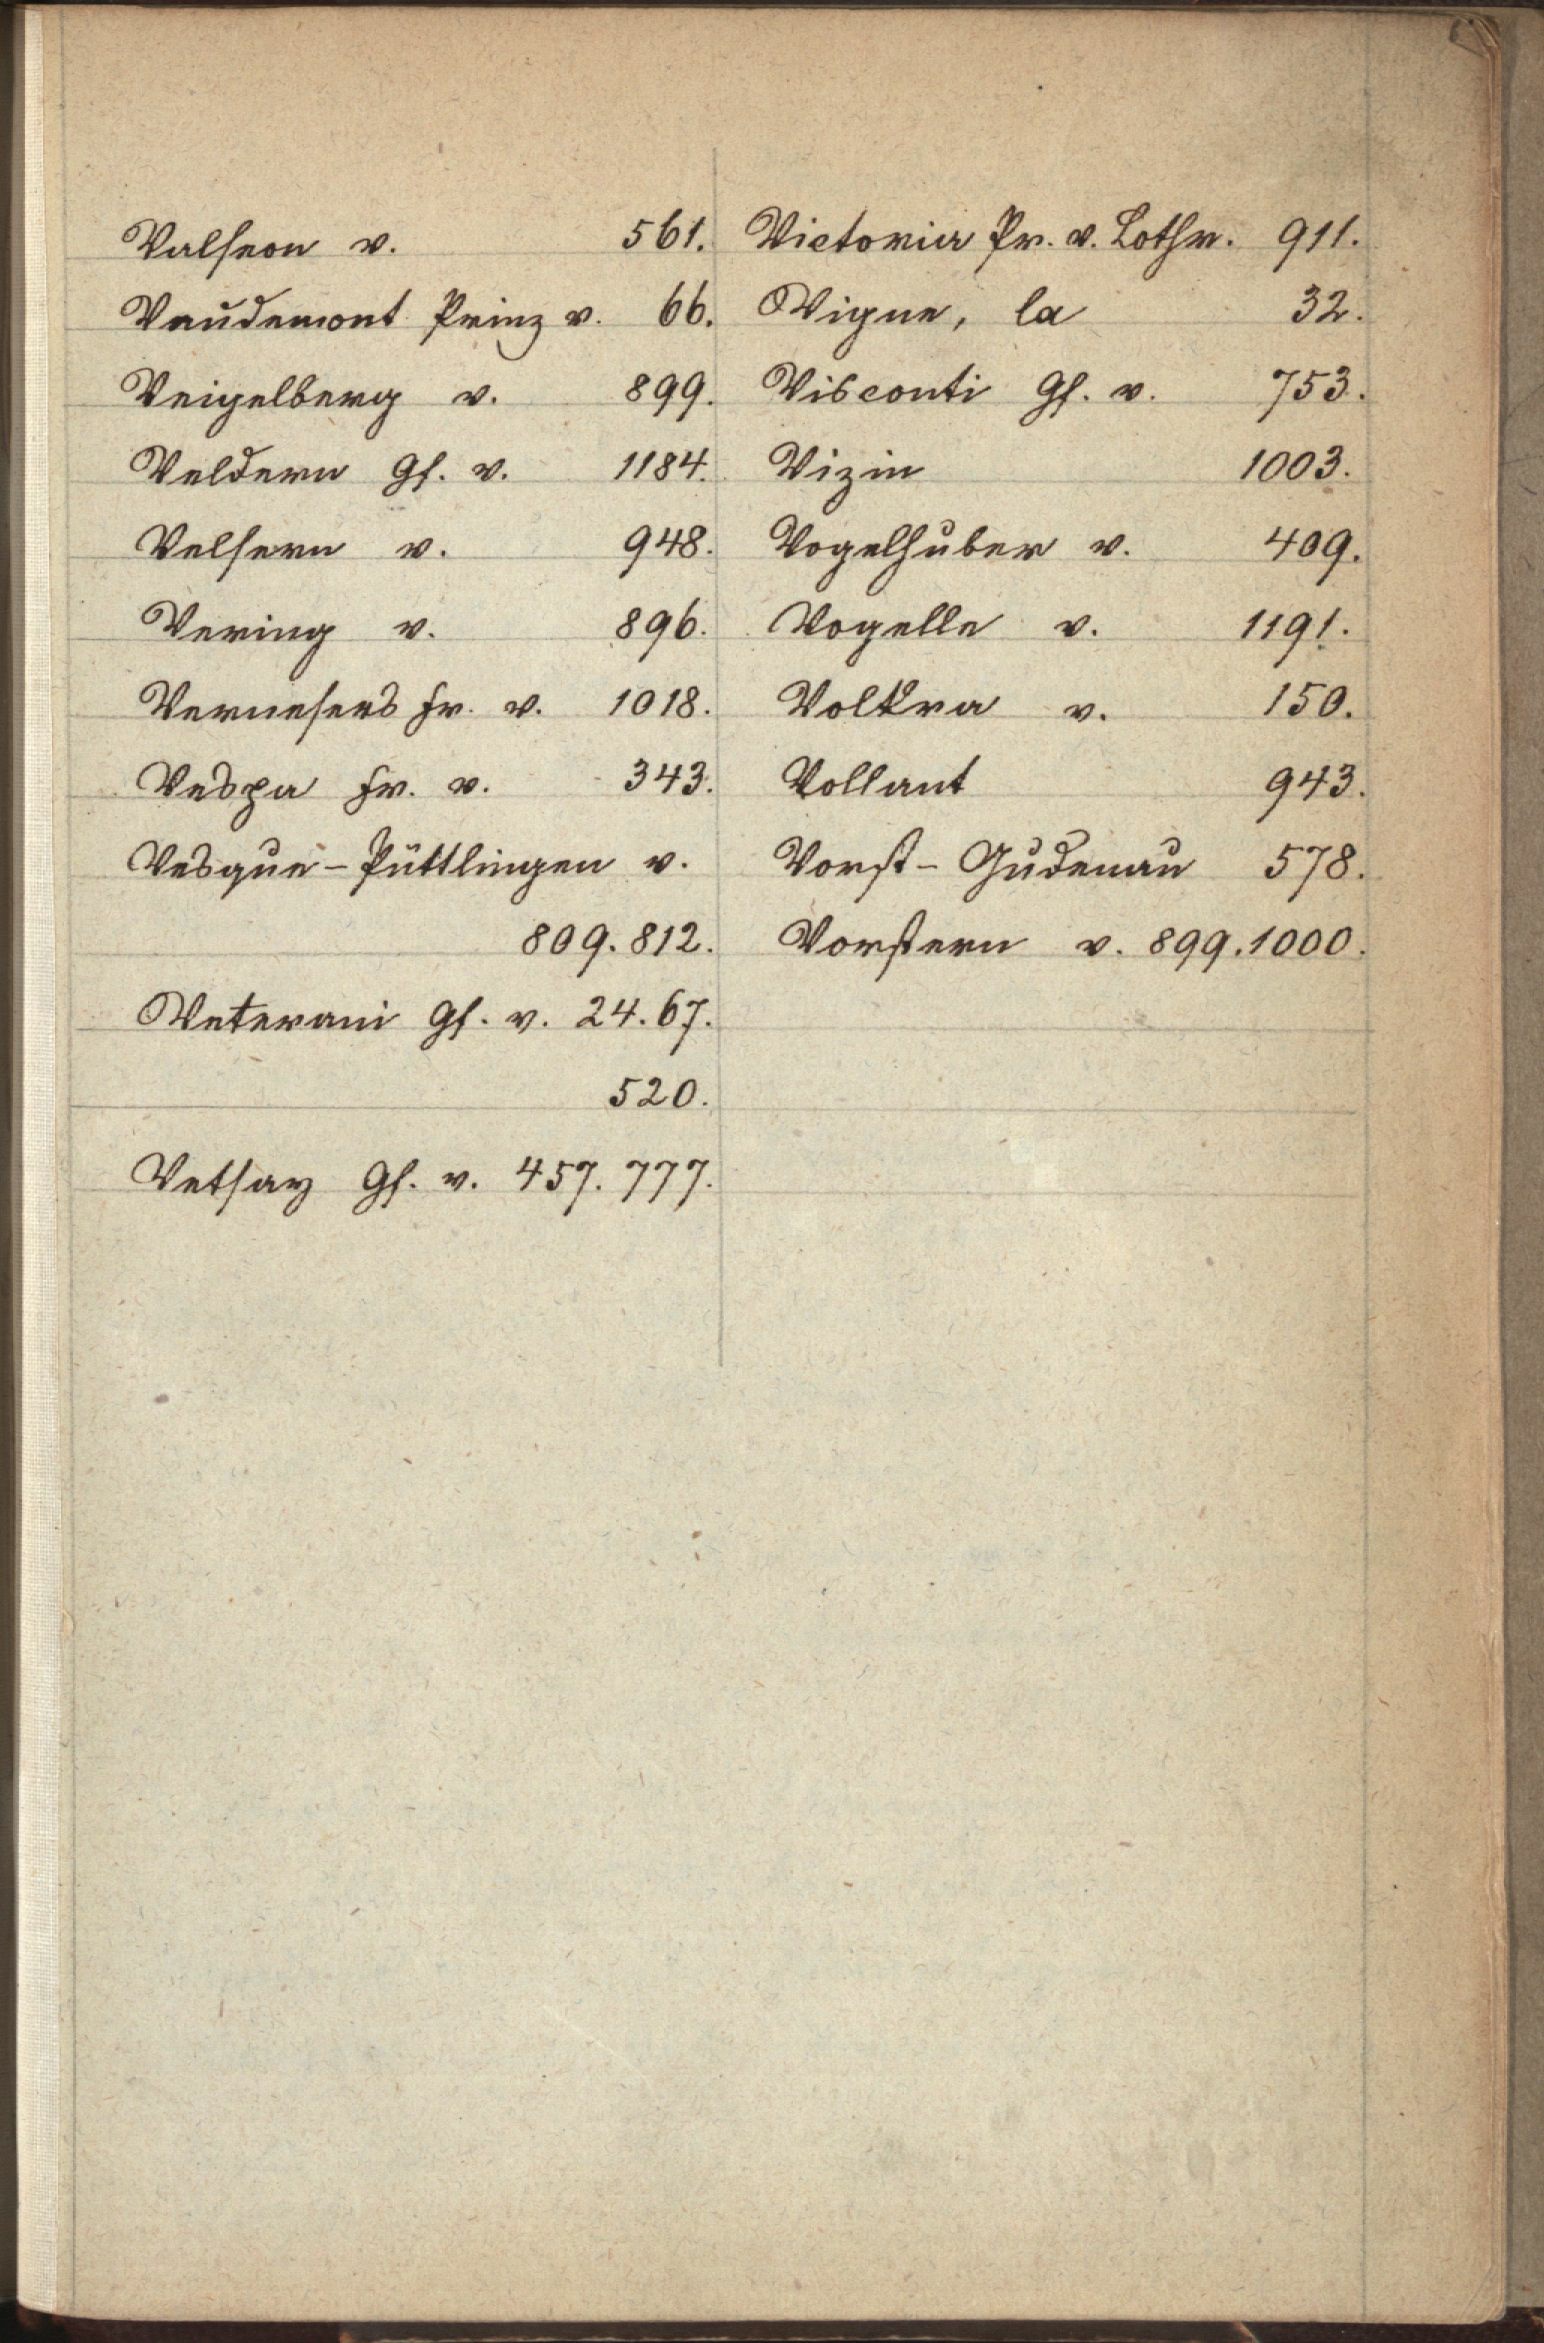 Valseon v. 561.
Vaudemont Prinz v. 66.
Veigelberg v. 899.
Veldern Gf. v. 1184.
Velsern v. 948.
Vering v. 896.
Fr. v. 1018.
Vespa Fr. v. 343.
Vesque-Püttlingen v.
809. 812.
Veterani Gf. v. 24. 67.
520.
Gf. v. 457. 777.
Victoria Pr. v. Lothr. 911.
Vigne, la 32.
Visconti Gf. v. 753.
Vizin 1003.
Vogelhuber v. 409.
Vogelle v. 1191.
Volkra v. 150.
Vollant 943.
Vorst-Gudenau 578.
Vorstern v. 899. 1000.